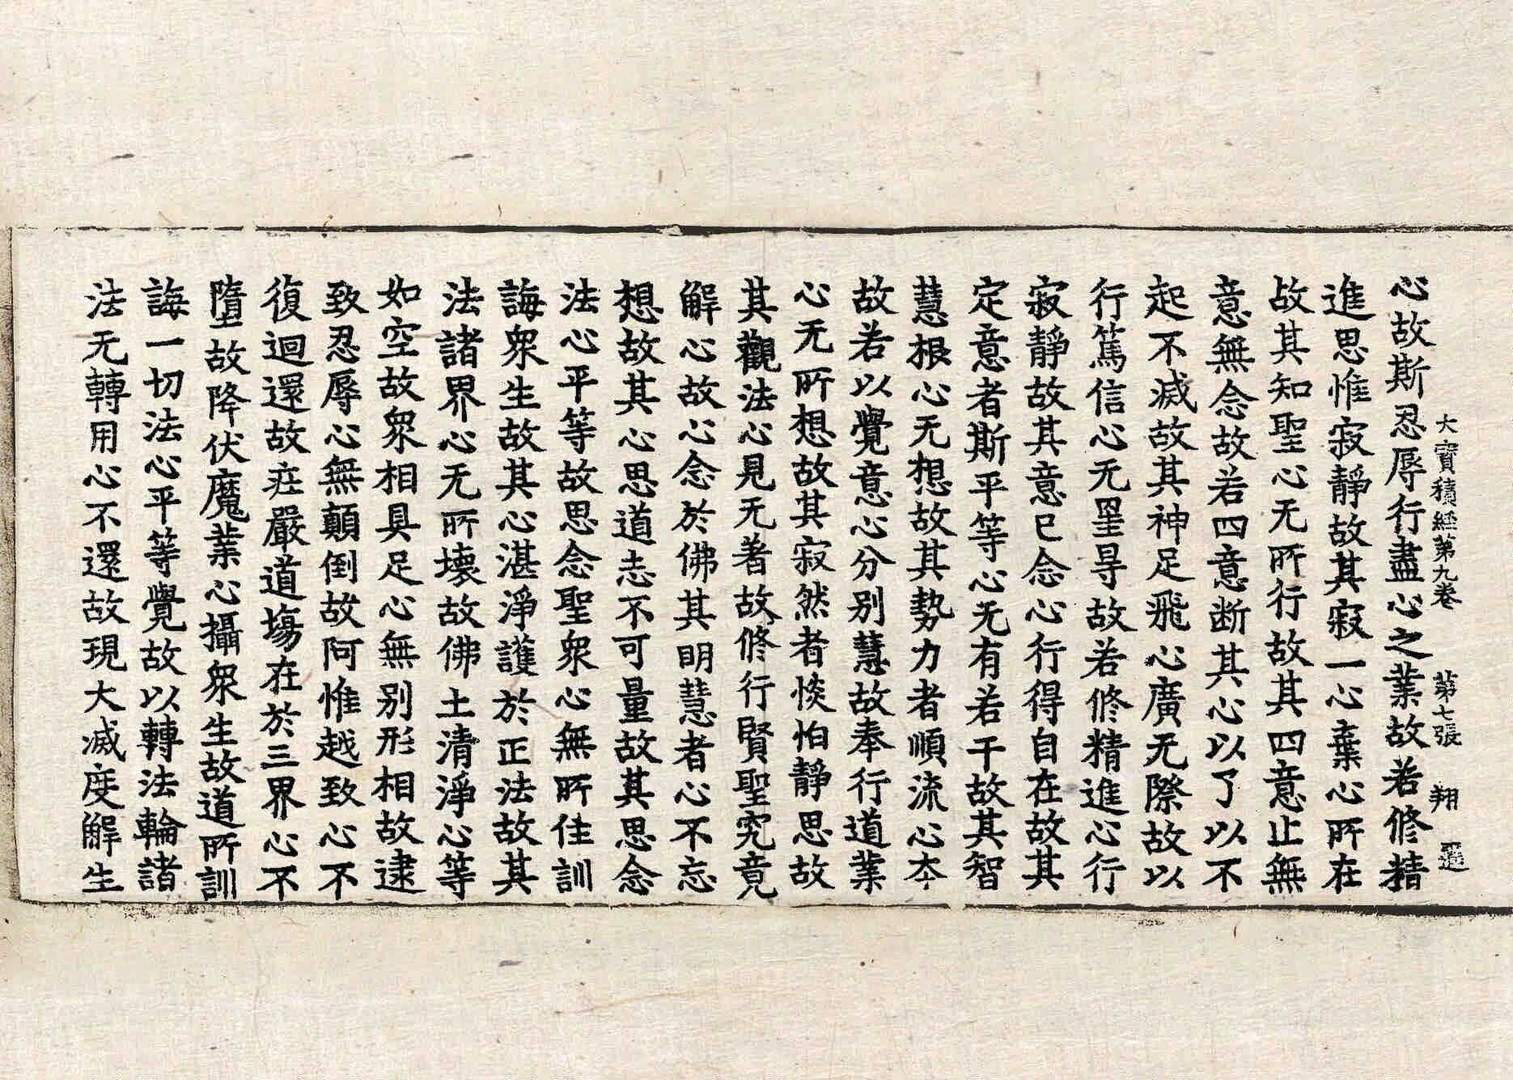 大寶積經第九卷　第七張　翔
心故斯忍辱行盡心之業故若修精
進思惟寂靜故其寂一心棄心所在
故其知聖心无所行故其四意止無
意無念故若四意断其心以了以不
起不滅故其神足飛心廣无際故以
行篤信心无罣㝵故若修精進心行
寂靜故其意已念心行得自在故其
定意者斯平等心无有若干故其智
慧根心无想故其勢力者順流心夲
故若以覺意心分别慧故奉行道業
心无所想故其寂然者惔怕靜思故
其觀法心見无著故修行賢聖究竟
解心故心念於佛其明慧者心不忘
想故其心思道志不可量故其思念
法心平等故思念聖衆心無所住訓
誨衆生故其心湛淨護於正法故其
法諸界心无所壞故佛土清淨心等
如空故衆相具足心無别形相故逮
致忍辱心無顛倒故阿惟越致心不
復迴還故莊嚴道場在於三界心不
墮故降伏魔業心攝衆生故道所訓
誨一切法心平等覺故以轉法輪諸
法无轉用心不還故現大滅度解生